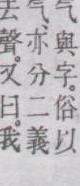 气與字。俗以
气。亦分二義
去聲。又曰。我